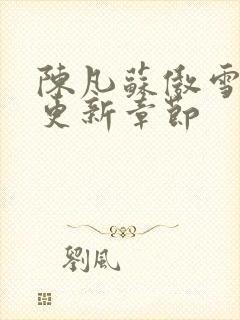 陳凡蘇傲雪
更新章節
劉風